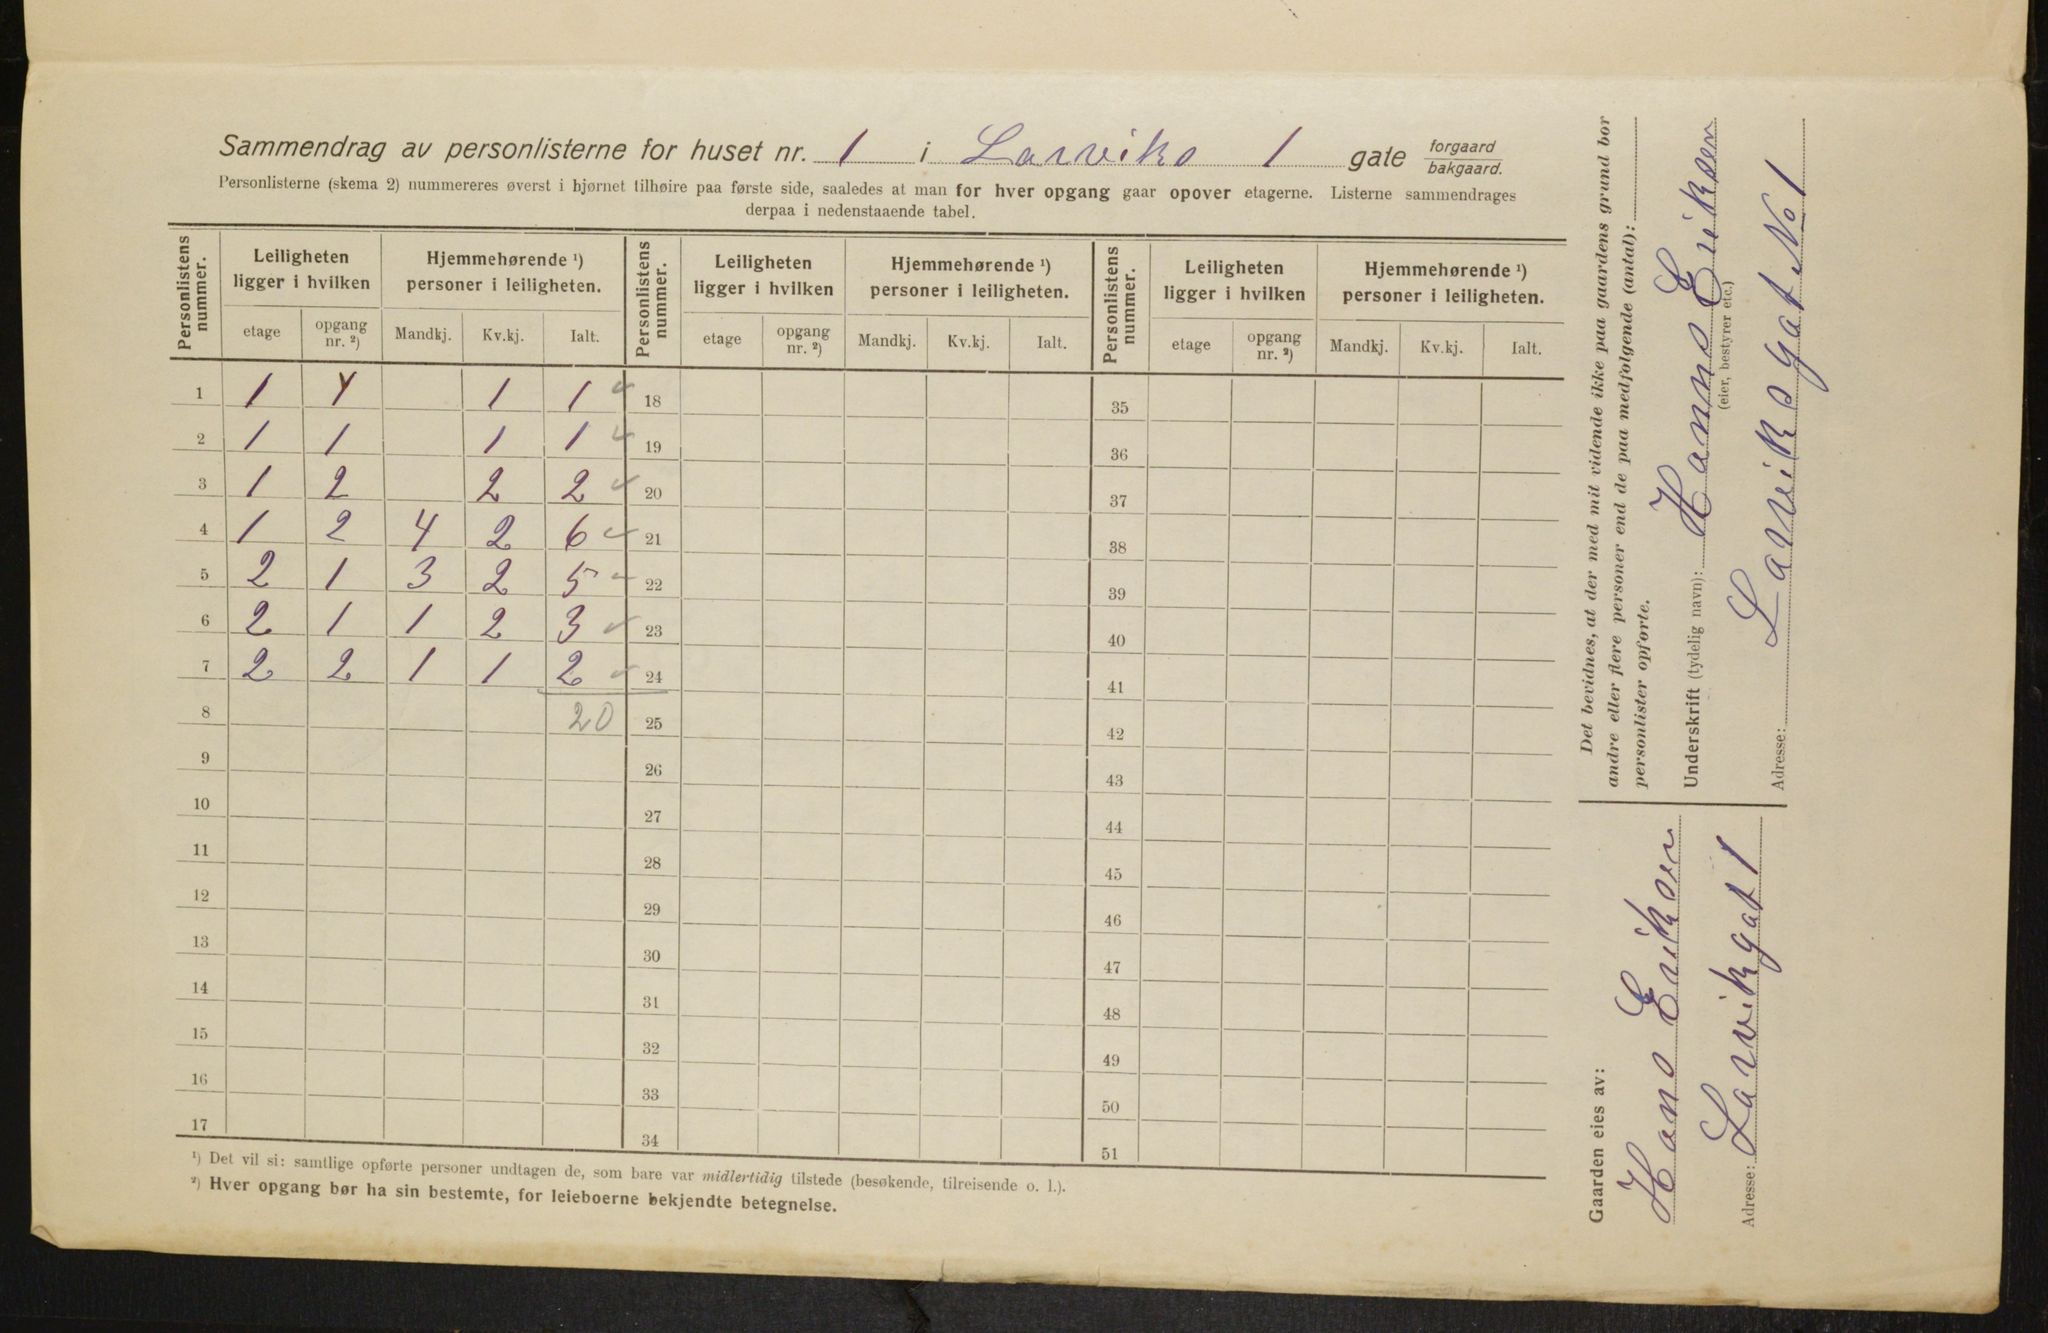 Sammendrag av personlisterne for huset nr. 1 i Larviks 1 gate forgaard bakgaard.
Personlisterne (skema 2) nummereres øverst i hjørnet tilhøire paa første side, saaledes at man for hver opgang gaar opover etagerne. Listerne sammendrages
derpaa i nedenstaaende tabel.
Personlistens nummer. Leiligheten ligger i hvilken Hjemmehørende ¹) personer i leiligheten. Personlistens nummer. Leiligheten ligger i hvilken Hjemmehørende ¹) personer i leiligheten. Personlistens nummer. Leiligheten ligger i hvilken Hjemmehørende ¹) personer i leiligheten.
etage opgang nr. ²) Mandkj. Kv.kj. Ialt. etage opgang nr. ²) Mandkj. Kv.kj. Ialt. etage opgang nr. ²) Mandkj. Kv.kj. Ialt.
1 1 1 1 1 18 35
2 1 1 1 1 19 36
3 1 2 2 2 20 37
4 1 2 4 2 6 21 38
5 2 1 3 2 5 22 39
6 2 1 1 2 3 23 40
7 2 2 1 1 2 24 41
8 20 25 42
9 26 43
10 27 44
11 28 45
12 29 46
13 30 47
14 31 48
15 32 49
16 33 50
17 34 51
¹) Det vil si: samtlige opførte personer undtagen de, som bare var midlertidig tilstede (besøkende, tilreisende o. l.).
²) Hver opgang bør ha sin bestemte, for leieboerne bekjendte betegnelse.
Det bevidnes, at der med mit vidende ikke paa gaardens grund bor
andre eller flere personer end de paa medfølgende (antal):
personlister opførte.
Underskrift (tydelig navn): Hanns Eriksen
(eier, bestyrer etc.)
Adresse: Larviksgat No 1
Gaarden eies av:
Hans Eriksen
Adresse: Larvikgat 1